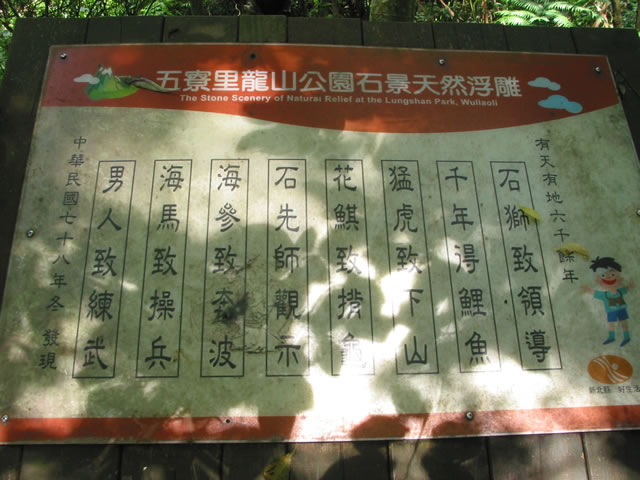 五寮里龍山公園石景天然浮雕
The Stone Scenery of Natural Relief at the Lungshan Park, Wuliaoli
有天有地六千餘年
石獅致領導
千年得鯉魚
猛虎致下山
花麒致揹龜
石先師觀示
海參致夯波
海馬致操兵
男人致練武
中華民國七十八年冬 發現
新北好生活